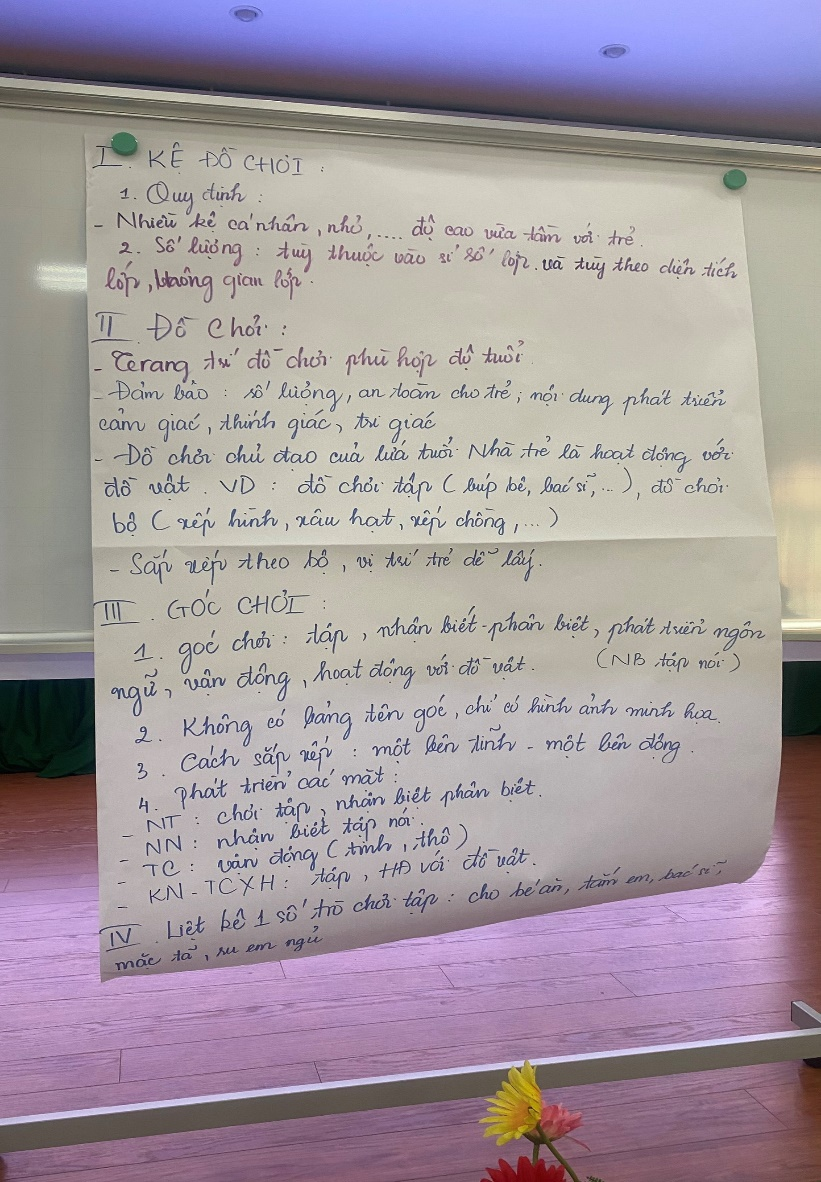 I. KỆ ĐỒ CHƠI :
1. Quy định :
- Nhiều kệ cá nhân, nhỏ, .... độ cao vừa tầm với trẻ.
2. Số lượng : tuỳ thuộc vào sỉ số lớp. và tuỳ theo diện tích
lớp, không gian lớp.
II. Đồ chơi :
- Trang trí đồ chơi phù hợp độ tuổi
- Đảm bảo : số lượng, an toàn cho trẻ; nội dung phát triển
cảm giác, thính giác, tri giác
- Đồ chơi chủ đạo của lứa tuổi Nhà trẻ là hoạt động với
đồ vật. VD : đồ chơi tập ( búp bê, bác sĩ, ... ), đồ chơi
bộ ( xếp hình, xâu hạt, xếp chồng, ... )
- Sắp xếp theo bộ, vị trí trẻ dễ lấy.
III. GÓC CHƠI :
1. góc chơi : tập, nhận biết - phân biệt, phát triển ngôn
ngữ, vận động, hoạt động với đồ vật. (NB tập nói)
2. Không có bảng tên góc, chỉ có hình ảnh minh họa.
3. Cách sắp xếp : một bên tĩnh - một bên động.
4. Phát triển các mặt :
- NT : chơi tập, nhận biết phân biệt.
- NN : nhận biết tập nói.
- TC : vận động ( tinh, thô )
- KN - TCXH : tập, HĐ với đồ vật.
IV. Liệt kê 1 số trò chơi tập : cho bé ăn, tắm em, bác sĩ,
mặc tã, ru em ngủ